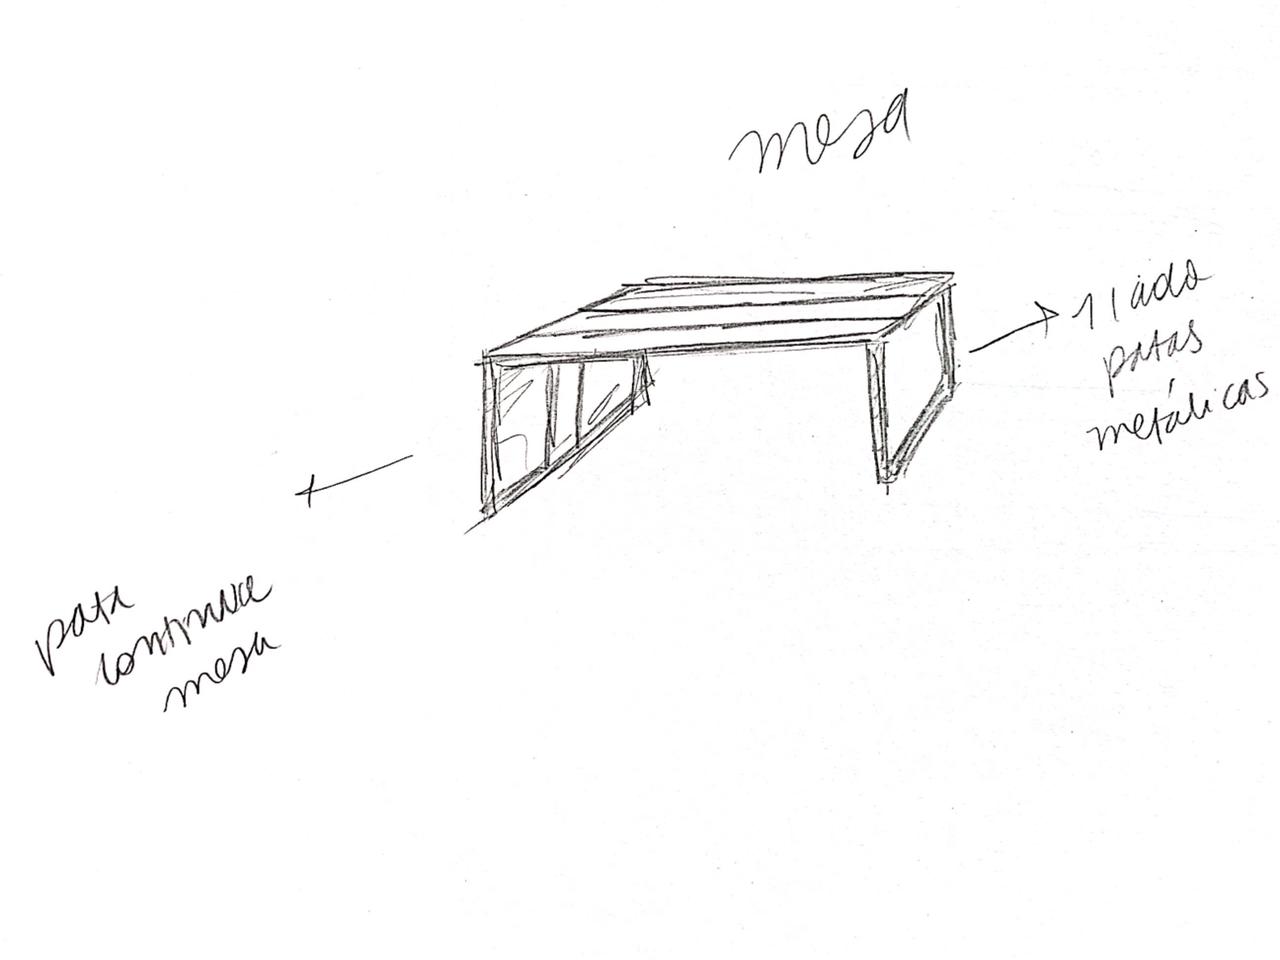 mesa
1 lado
patas
metálicas
pata
continua
mesa